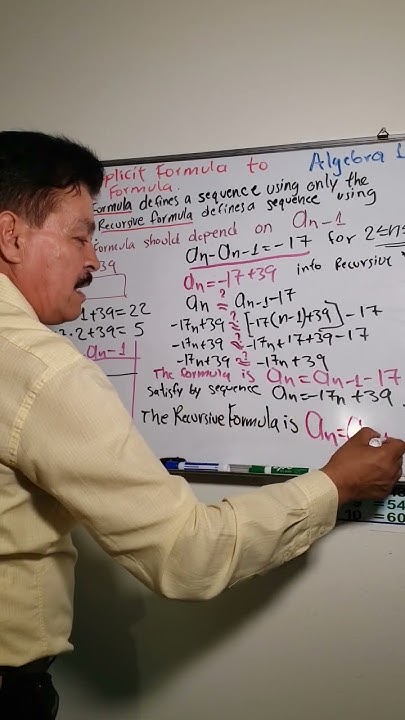 plicit Formula to Algebra 1
Formula.
formula defines a sequence using only the
Recursive formula defines a sequence using
formula should depend on an-1
39
an-an-1=-17 for 2≤n≤
an=-17+39 into Recursive
an ?= an-1-17
1+39=22
-17n+39 ?= [-17(n-1)+39]-17
2+39=5
-17n+39 ?= -17n+17+39-17
an-1
-17n+39 ?= -17n+39
The formula is an=an-1-17
satisfy by sequence an=-17n+39.
The Recursive Formula is an=a
=54
10 =60